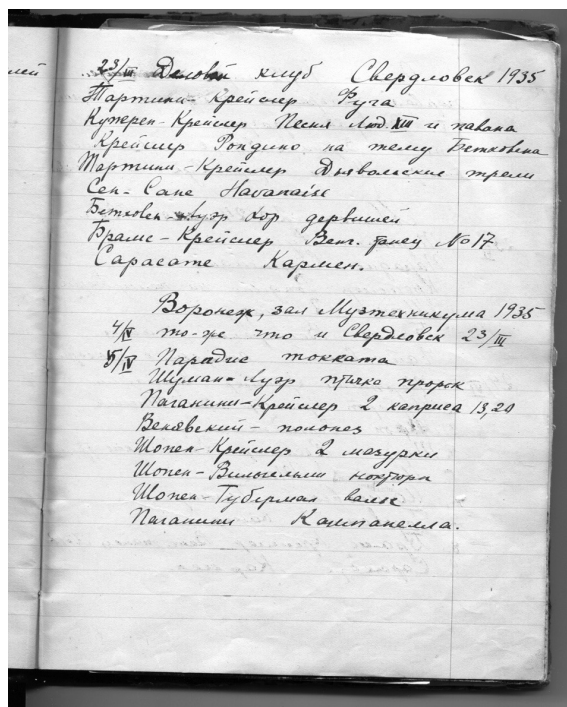 лей
23/III Деловой клуб Свердловск 1935
Тартини-Крейслер Фуга
Куперен-Крейслер Песня Люд. XIII и павана
Крейслер Рондино на тему Бетховена
Тартини-Крейслер Дьявольские трели
Сен-Санс Havanaise
Бетховен-Ауэр Хор дервишей
Брамс-Крейслер Венг. танец No 17
Сарасате Кармен.
Воронеж, зал Музтехникума 1935
4/IV то-же что и Свердловск 23/III
5/IV Парадис токката
Шуман-Ауэр птичка пророк
Паганини-Крейслер 2 каприса 13,20
Венявский - полонез
Шопен-Крейслер 2 мазурки
Шопен-Вильгельми ноктюрн
Шопен-Губерман вальс
Паганини Кампанелла.